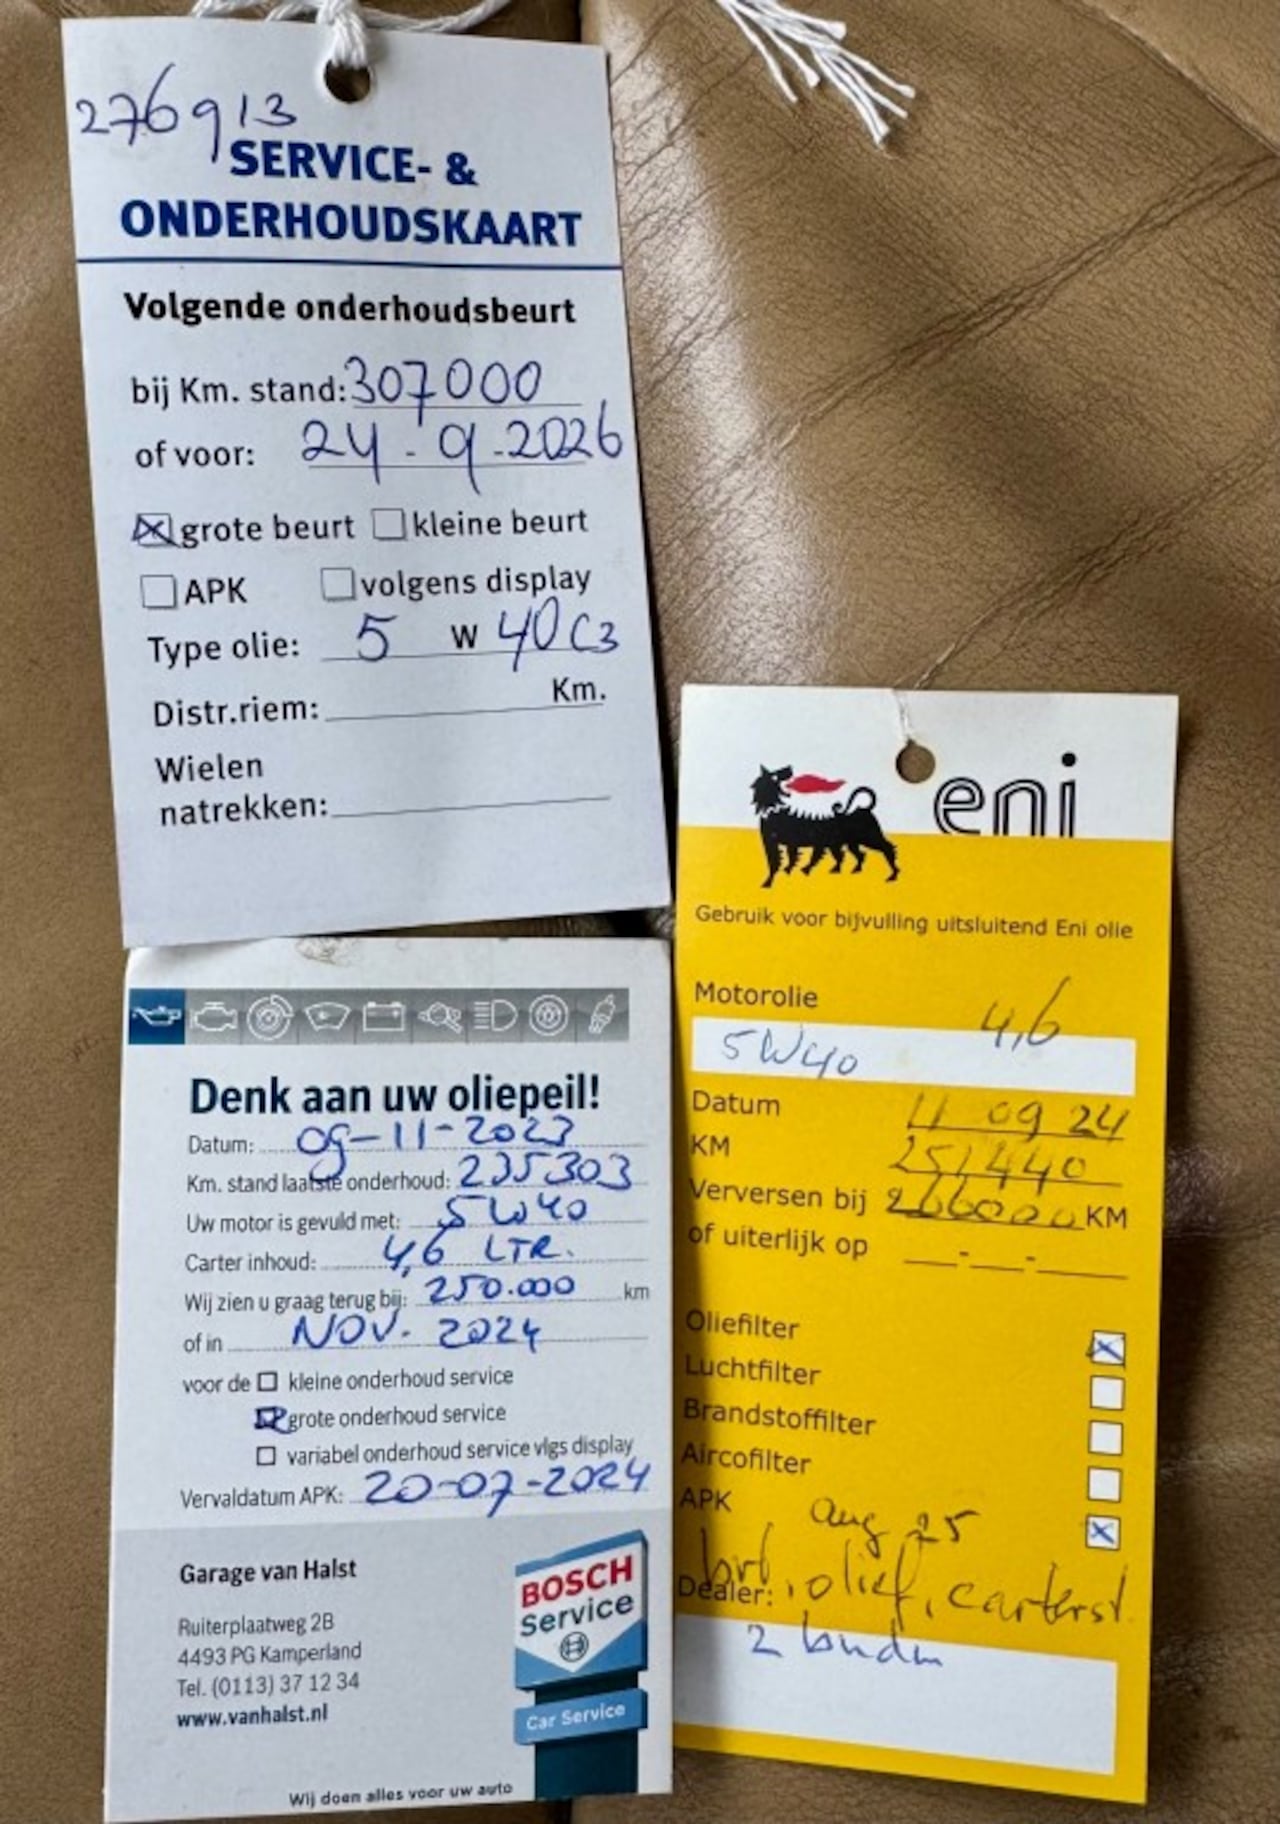 276913
SERVICE- &
ONDERHOUDSKAART
Volgende onderhoudsbeurt
bij Km. stand: 307000
of voor: 24-9-2026
grote beurt kleine beurt
APK volgens display
Type olie: 5 W 40 C3
Distr.riem: Km.
Wielen
natrekken:
Denk aan uw oliepeil!
Datum: 09-11-2023
Km. stand laatste onderhoud: 235303
Uw motor is gevuld met: 5W40
Carter inhoud: 4,6 LTR.
Wij zien u graag terug bij: 250.000 km
of in NOV. 2024
voor de kleine onderhoud service
grote onderhoud service
variabel onderhoud service vlgs display
Vervaldatum APK: 20-07-2024
Garage van Halst
Ruiterplaatweg 2B
4493 PG Kamperland
Tel. (0113) 37 12 34
www.vanhalst.nl
BOSCH
Service
Car Service
Wij doen alles voor uw auto
eni
Gebruik voor bijvulling uitsluitend Eni olie
Motorolie
4,6
5W40
Datum 11 09 24
KM 251440
Verversen bij 266000 KM
of uiterlijk op - -
Oliefilter
Luchtfilter
Brandstoffilter
Aircofilter
APK aug 25
Dealer: olief, carterst.
2